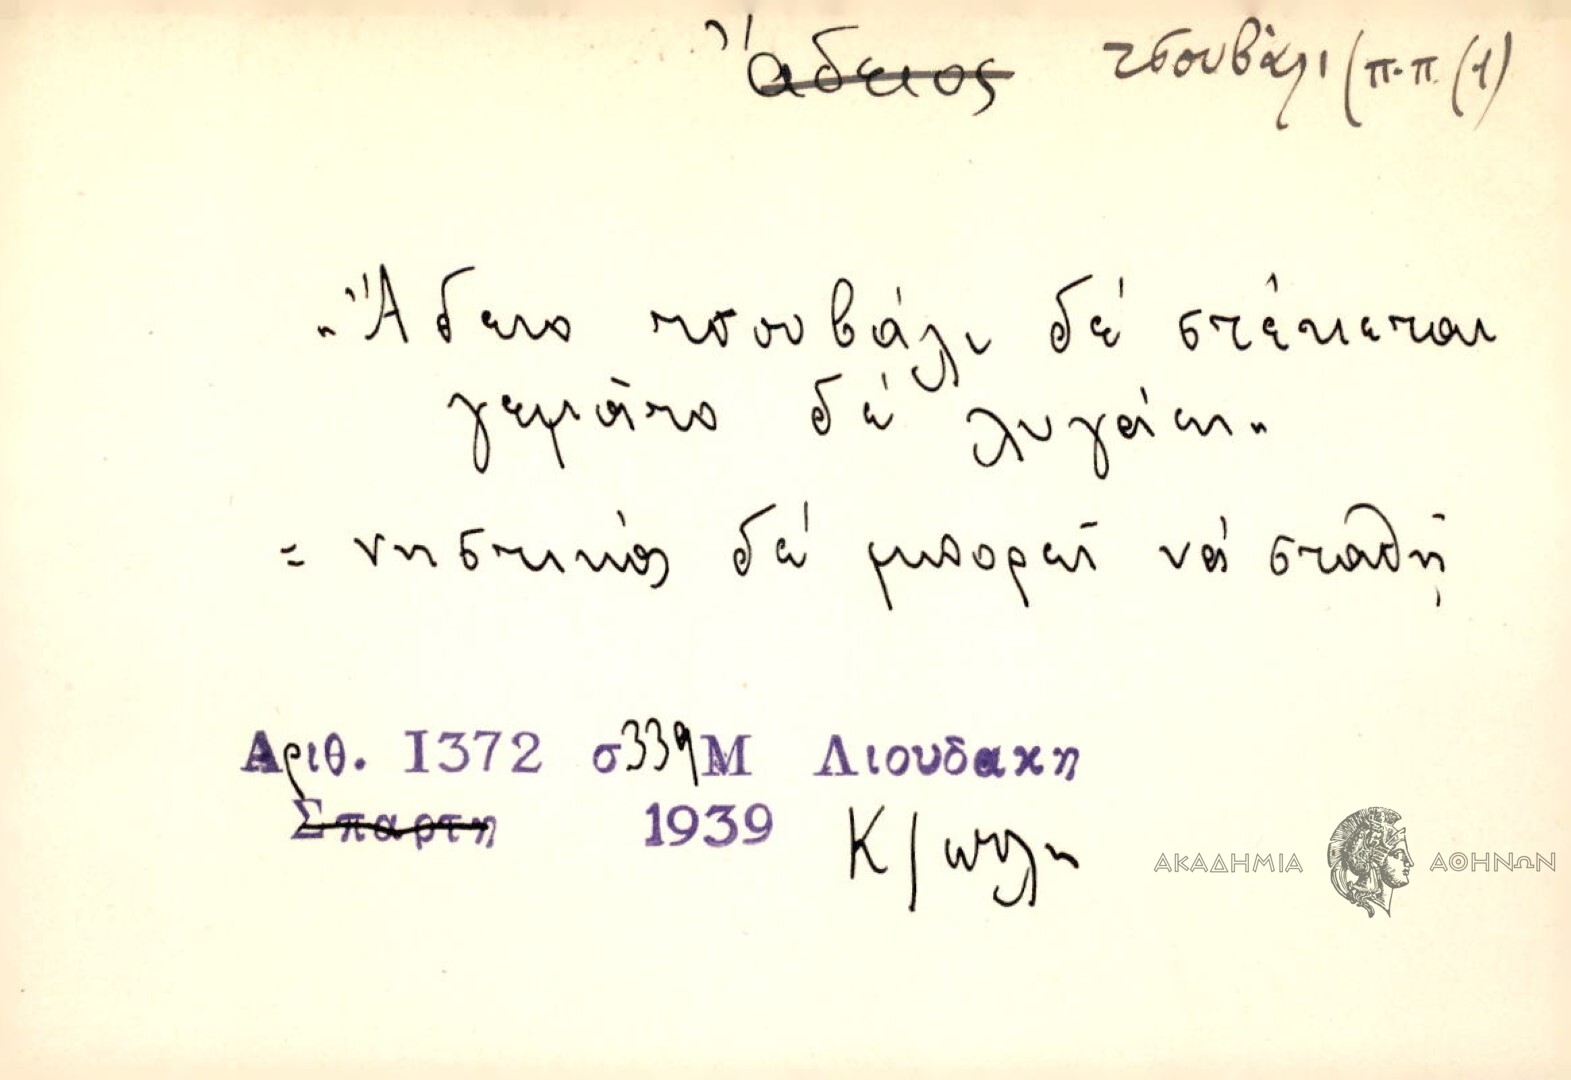 Ἄδειος τσουβάλι (π.π. (1)
„Ἄδειο τσουβάλι δέ στέκεται
γεμᾶτο δέ λυγάει"
= νηστικός δέ μπορεῖ νά σταθῇ
Αριθ. 1372 σ 339 Μ Λιουδακη
Σπαρτη 1939 Κ/πολη
ΑΚΑΔΗΜΙΑ ΑΘΗΝΩΝ